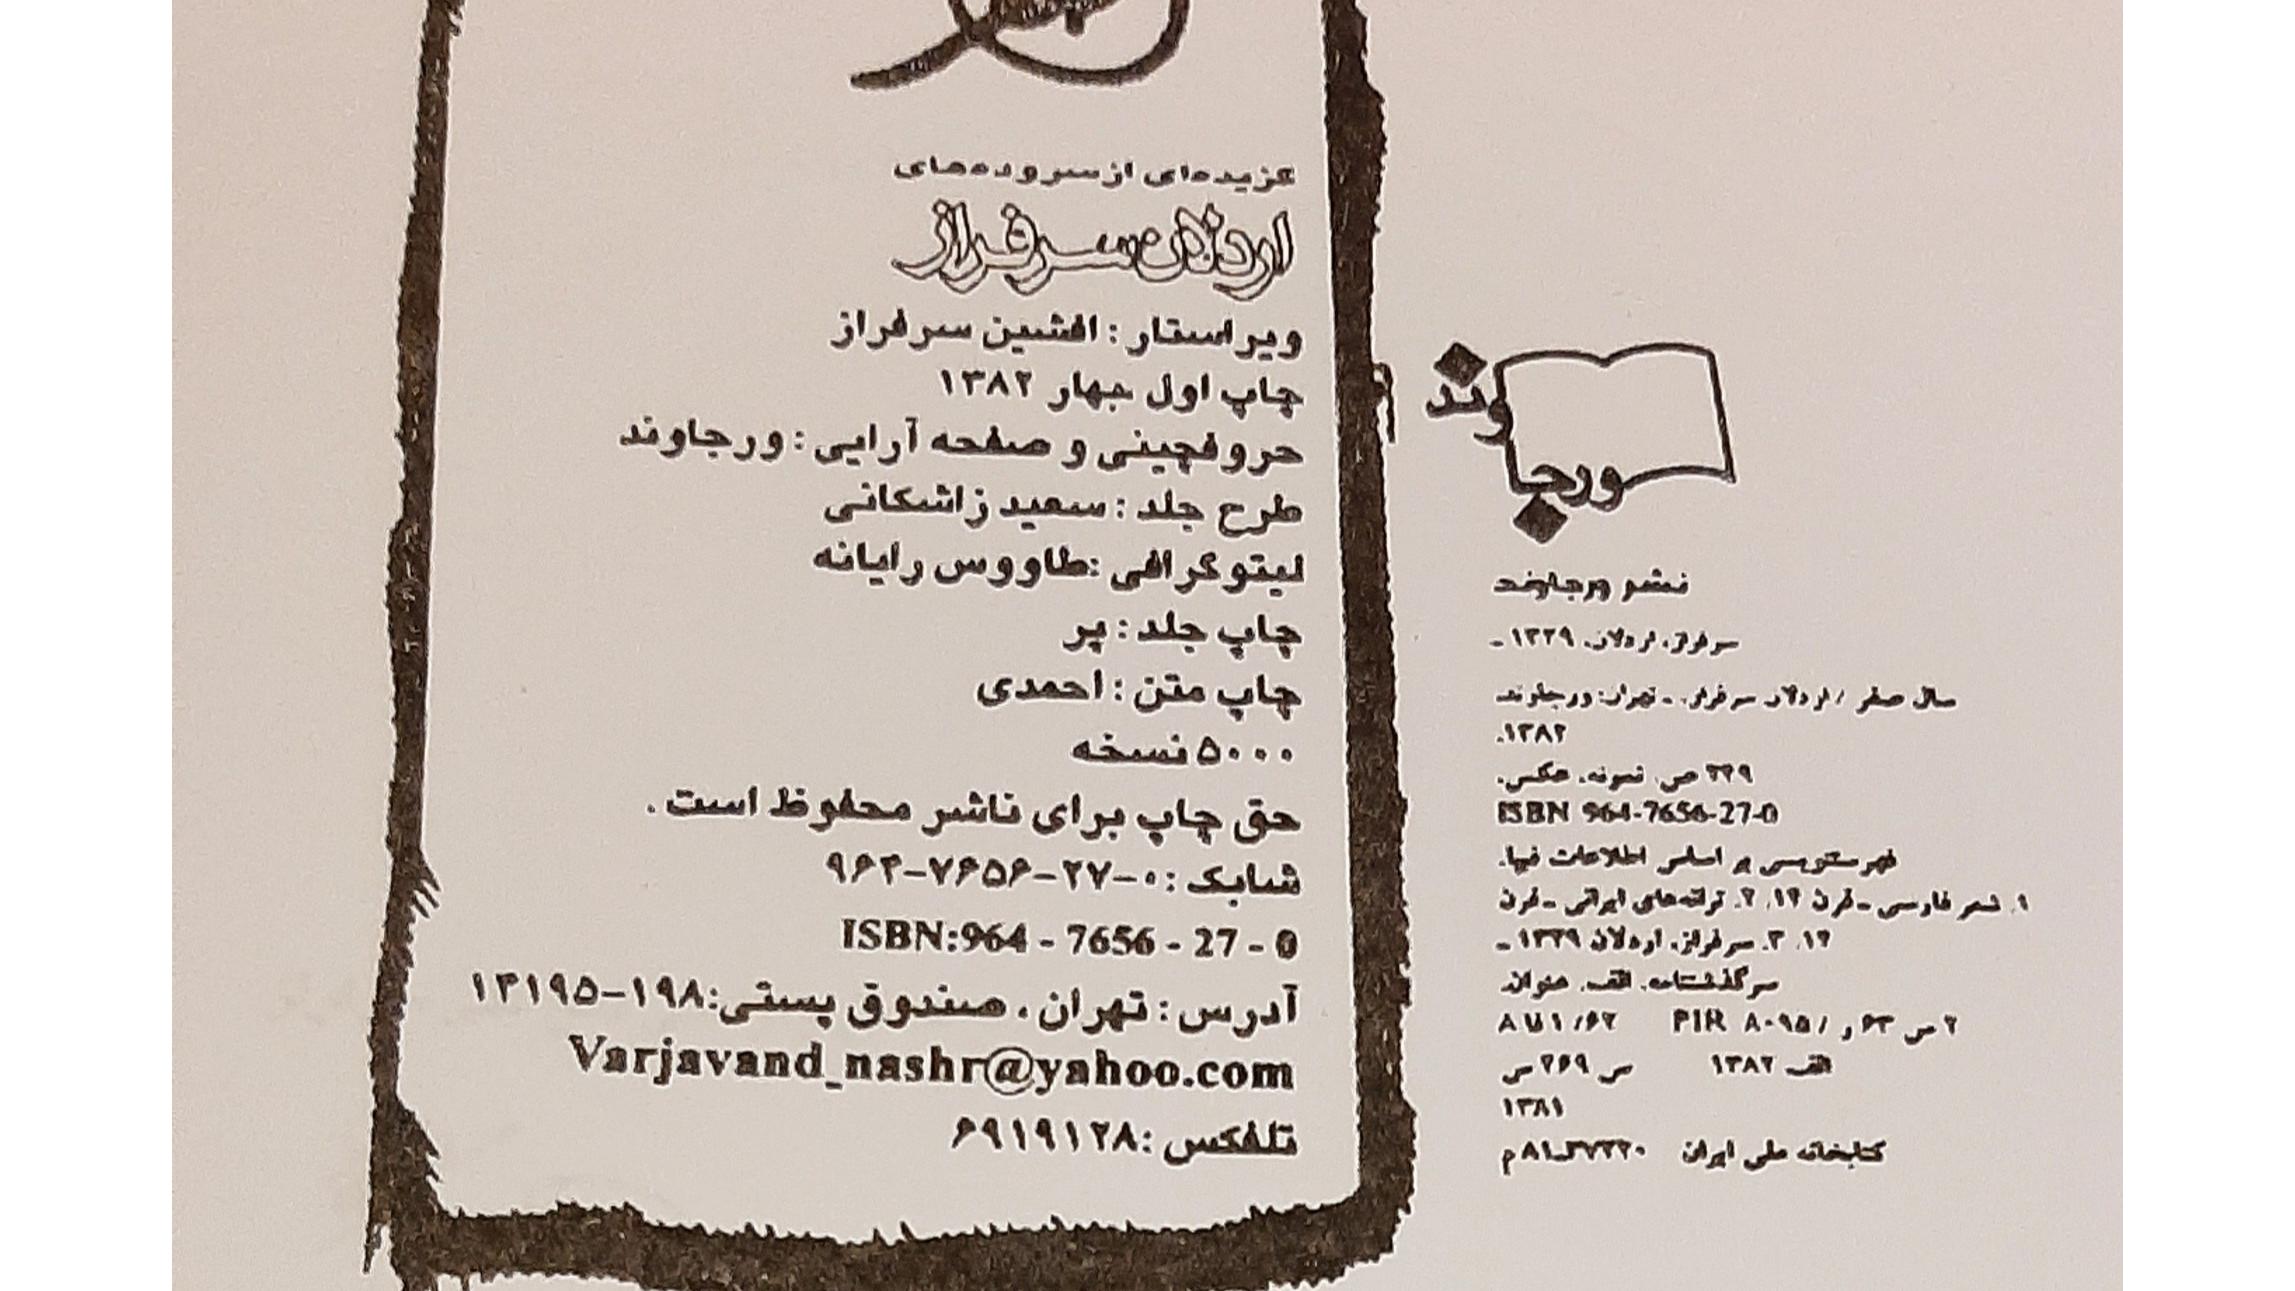 گزیده‌ای از سروده‌های
اردلان سرفراز
ویراستار : افشین سرفراز
چاپ اول بهار ۱۳۸۲
حروفچینی و صفحه آرایی : ورجاوند
طرح جلد : سعید زاشکانی
لیتوگرافی :طاووس رایانه
چاپ جلد : پر
چاپ متن : احمدی
۵۰۰۰ نسخه
حق چاپ برای ناشر محفوظ است .
شابک : ۹۶۴-۷۶۵۶-۲۷-۰
ISBN:964 - 7656 - 27 - 0
آدرس : تهران ، صندوق پستی:۱۹۸-۱۳۱۹۵
Varjavand_nashr@yahoo.com
تلفکس :۶۹۱۹۱۲۸
ورجاوند
نشر ورجاوند
سرفراز، اردلان، ۱۳۲۹ -
سال صفر / اردلان سرفراز. - تهران: ورجاوند،
۱۳۸۲.
۲۲۹ ص. نمونه، عکس.
ISBN 964-7656-27-0
فهرستنویسی بر اساس اطلاعات فیپا.
۱. شعر فارسی - قرن ۱۴. ۲. ترانه‌های ایرانی - قرن
۱۴. ۳. سرفراز، اردلان ۱۳۲۹ -
سرگذشتنامه. الف. عنوان.
۲ س ۶۳ ر / PIR ۸۰۹۵ ۸ فا ۱/۶۲
الف ۱۳۸۲ س ۲۶۹ س
۱۳۸۱
کتابخانه ملی ایران م۸۱-